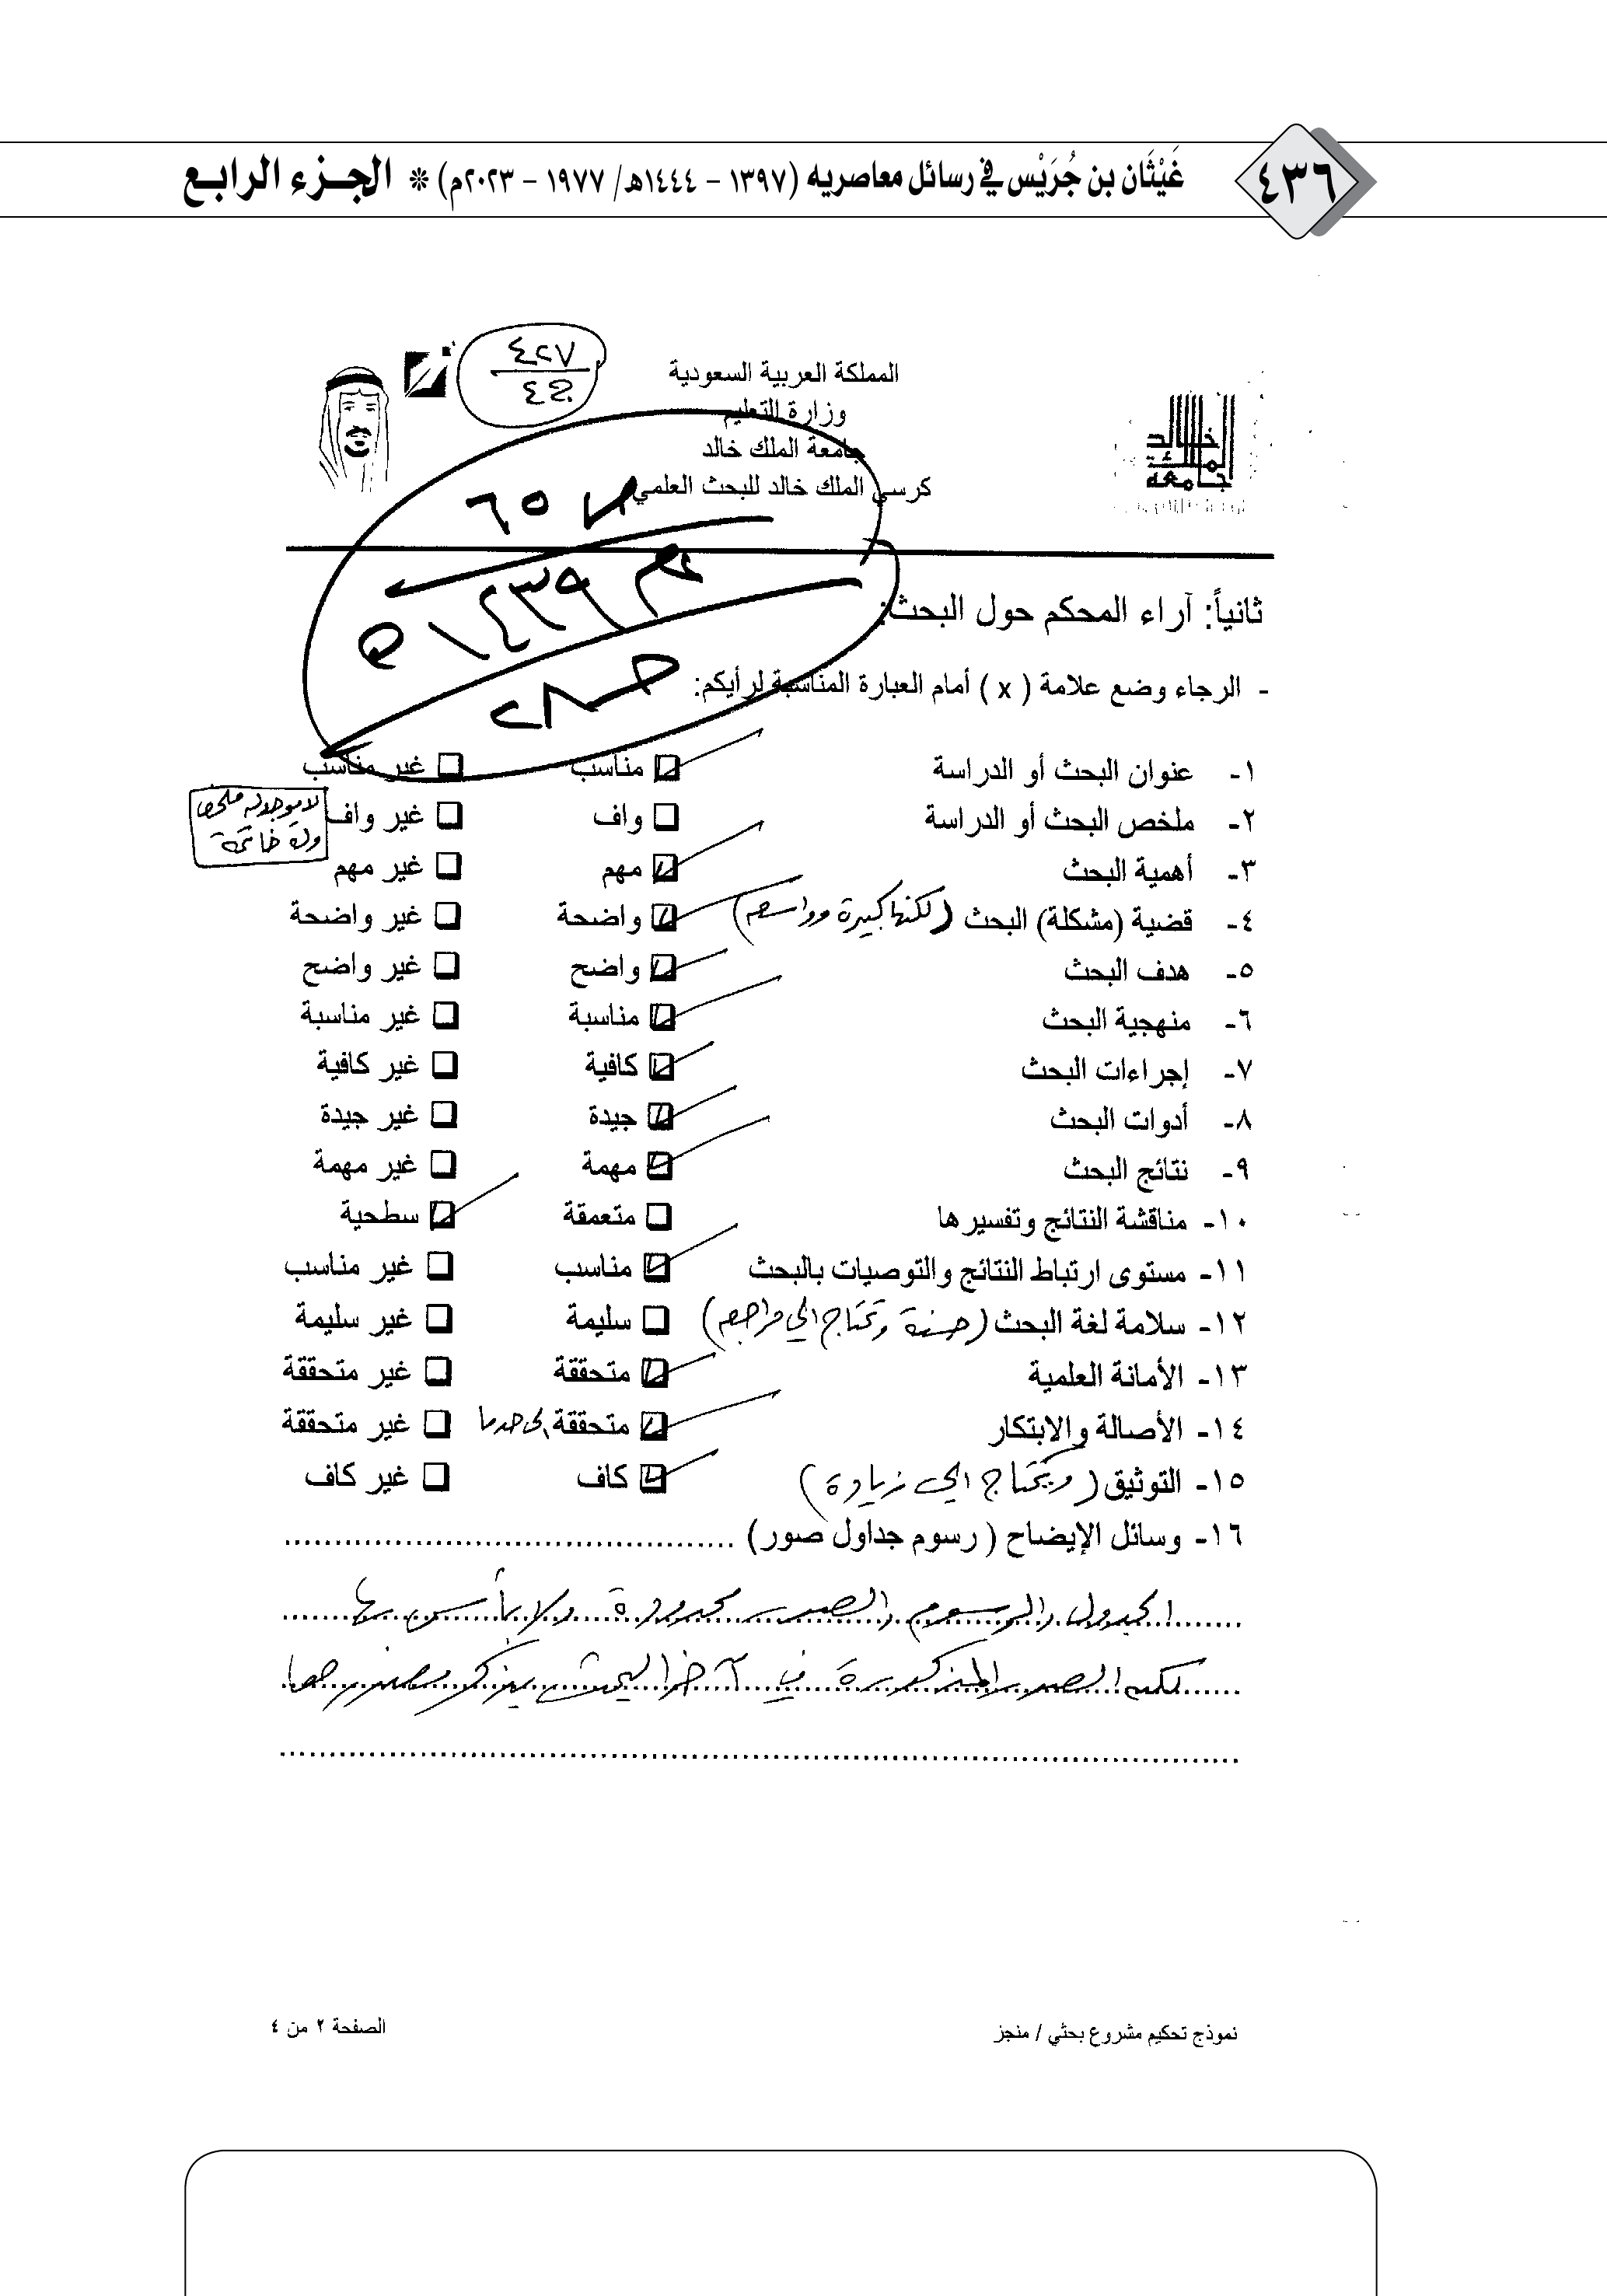 ٤٣٦
غَيْثَان بن جُرَيْس في رسائل معاصريه (١٣٩٧ - ١٤٤٤هـ/ ١٩٧٧ - ٢٠٢٣م) * الجزء الرابع
٤٢٧
المملكة العربية السعودية
وزارة التعليم
جامعة الملك خالد
كرسي الملك خالد للبحث العلمي
جامعة الملك خالد
ص ٦٥
١٤٣٩هـ
ثانياً: آراء المحكم حول البحث:
- الرجاء وضع علامة ( x ) أمام العبارة المناسبة لرأيكم:
١- عنوان البحث أو الدراسة مناسب غير مناسب
٢- ملخص البحث أو الدراسة واف غير واف
لا يوجد له ملخص
ولا خاتمة
٣- أهمية البحث مهم غير مهم
٤- قضية (مشكلة) البحث (لكنها كبيرة وواسعة) واضحة غير واضحة
٥- هدف البحث واضح غير واضح
٦- منهجية البحث مناسبة غير مناسبة
٧- إجراءات البحث كافية غير كافية
٨- أدوات البحث جيدة غير جيدة
٩- نتائج البحث مهمة غير مهمة
١٠- مناقشة النتائج وتفسيرها متعمقة سطحية
١١- مستوى ارتباط النتائج والتوصيات بالبحث مناسب غير مناسب
١٢- سلامة لغة البحث (حسنة وتحتاج الى مراجعة) سليمة غير سليمة
١٣- الأمانة العلمية متحققة غير متحققة
١٤- الأصالة والابتكار متحققة إلى حد ما غير متحققة
١٥- التوثيق (ويحتاج الى زيادة) كاف غير كاف
١٦- وسائل الإيضاح ( رسوم جداول صور) ........................................
الجدول والرسوم والصور محدودة ولا بأس بها
لكن الصور المذكورة في آخر البحث يذكر مصدرها
نموذج تحكيم مشروع بحثي / منجز
الصفحة ٢ من ٤